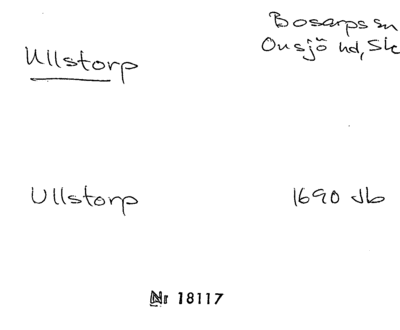 Ullstorp
Bosarps sn
Onsjö hd, Sk
Ullstorp
1690 Jb
Nr 18117